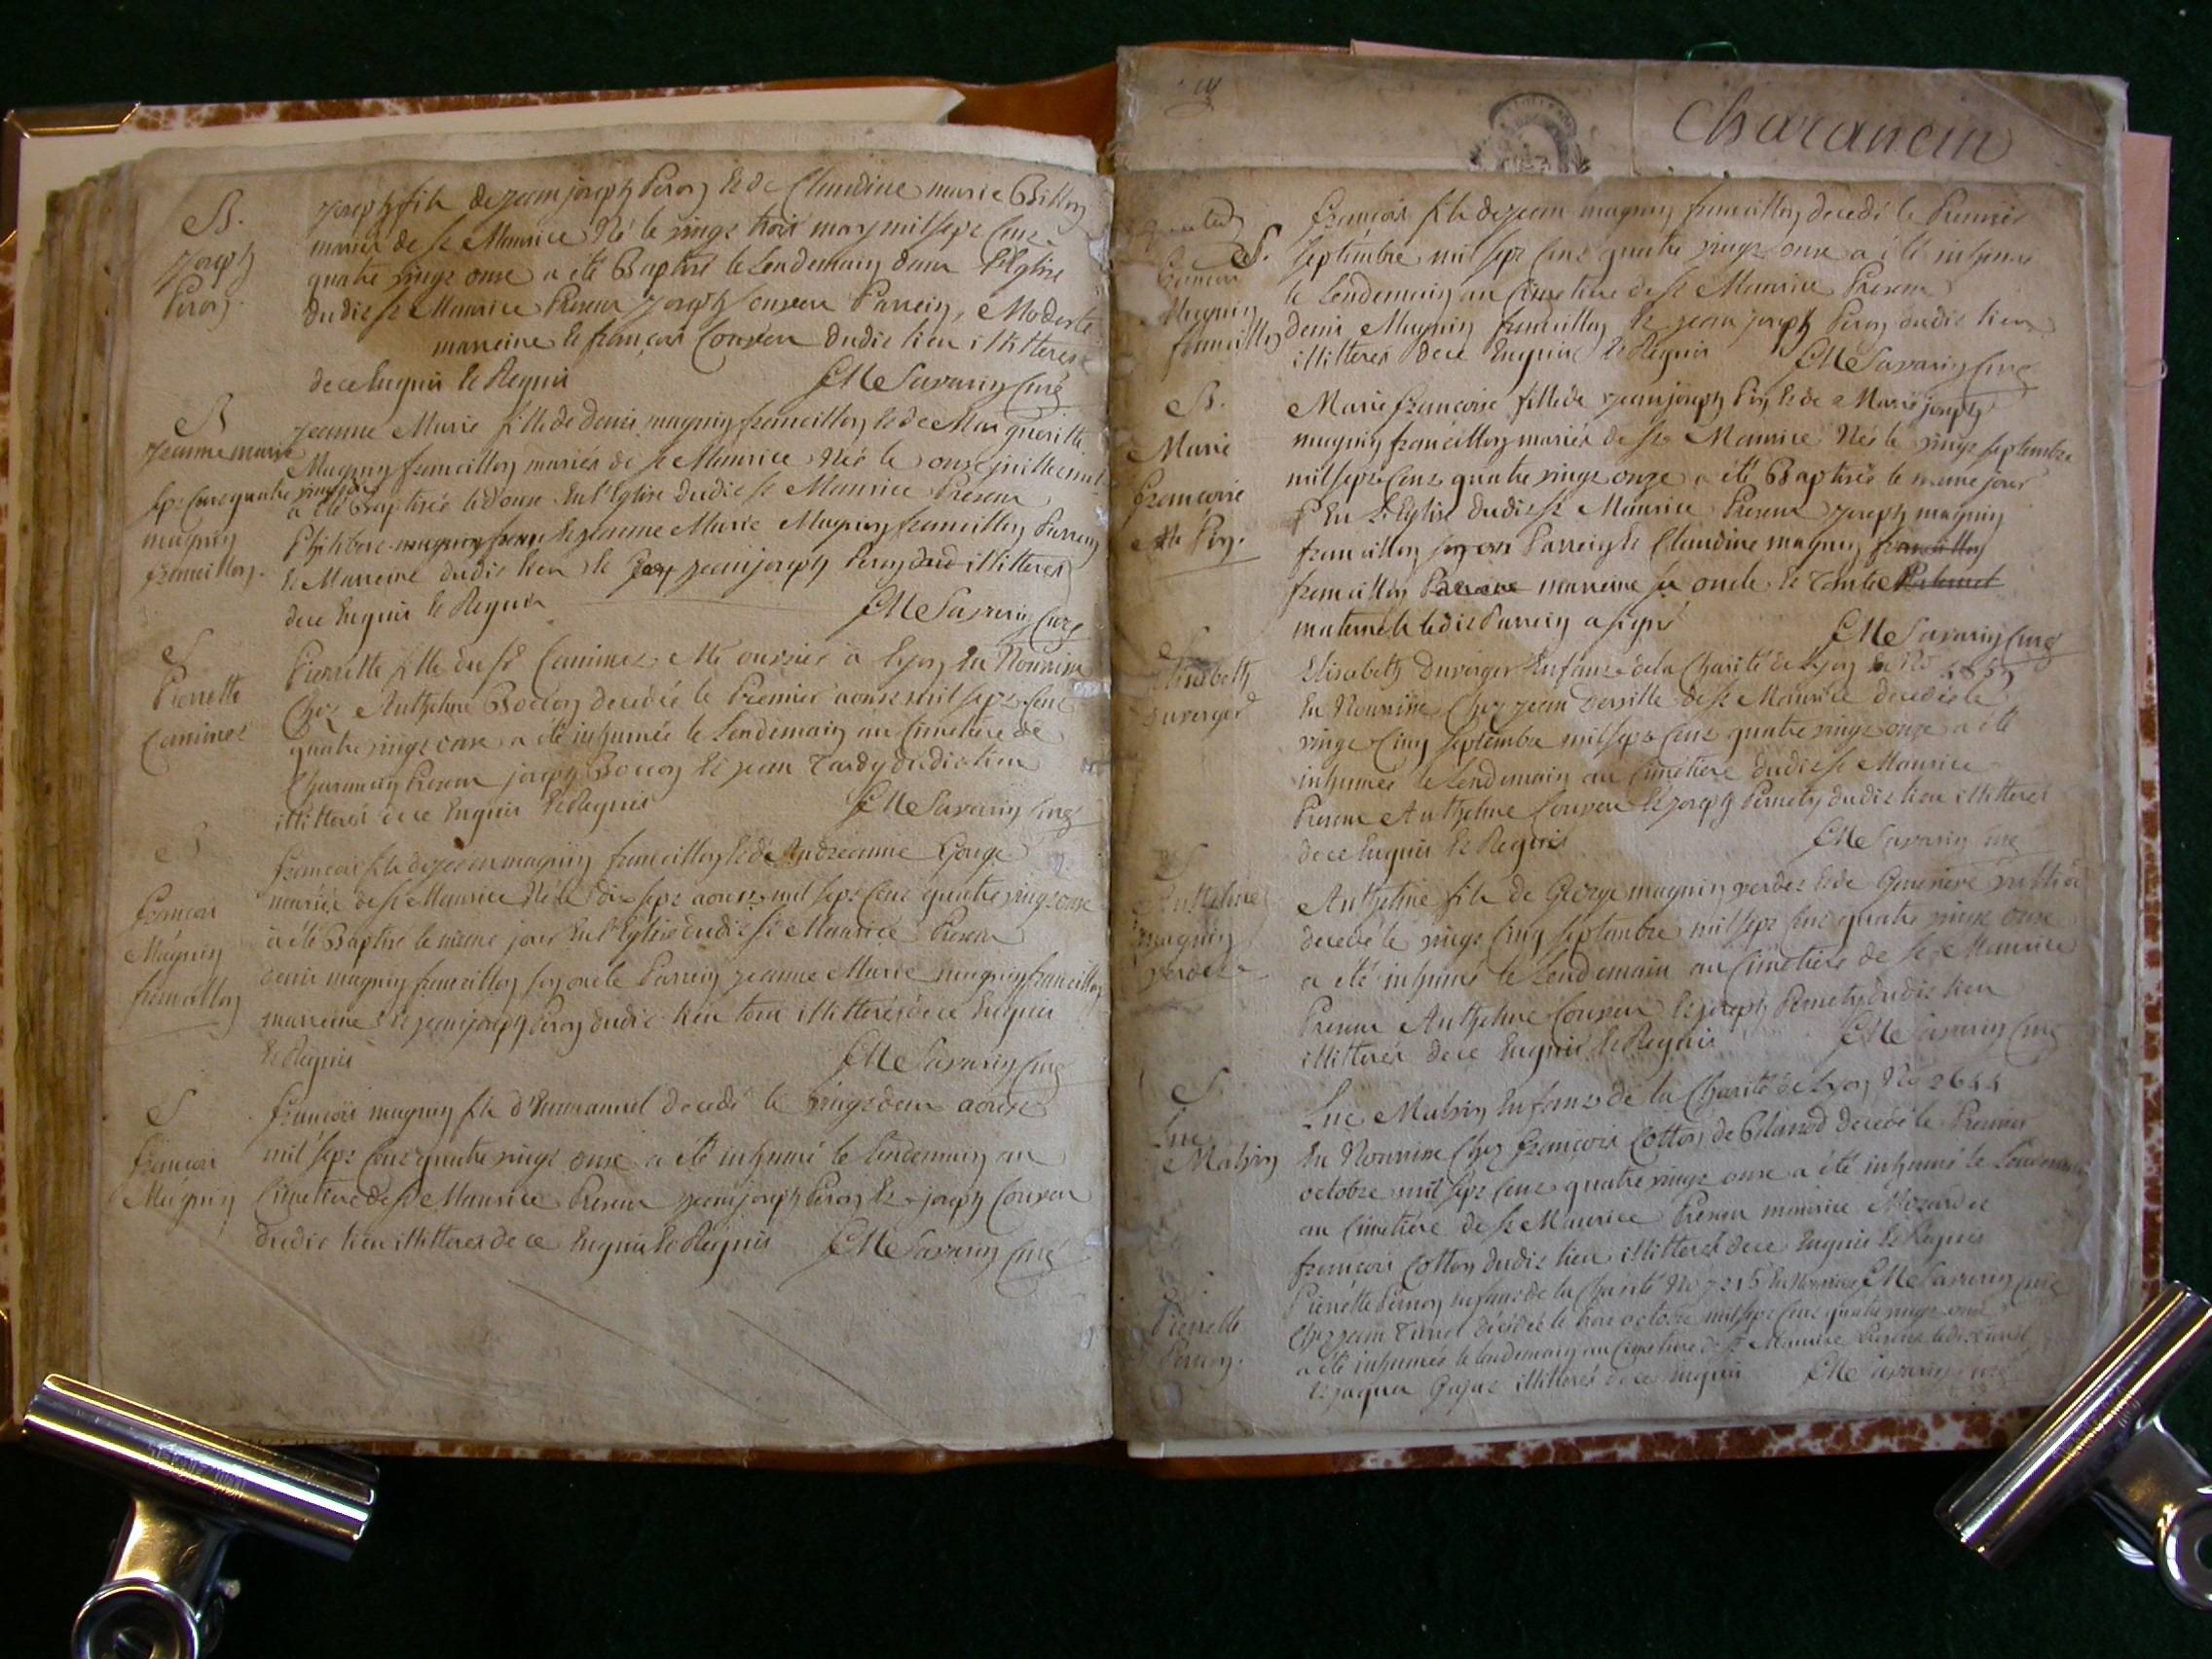 B.
Joseph
Peron.
Joseph fils de jean joseph Peron & de Claudine marie Billon
mariés de st Maurice Né le vingt trois may mil sept cent
quatre vingt onze a été Baptisé le Lendemain dans L'Eglise
dudit st Maurice Presens Joseph Couveu Parrein, Modeste
marreine & françois Couveu dudit lieu illitterés
de ce Enquis & Requis
CM Savarin Curé
B
Jeanne marie
magnin
francillon.
Jeanne Marie fille de Denis magnin francillon & de Margueritte
Magnin francillon mariés de st Maurice Née le onze juillet mil
sept cent quatre vingt
a été Baptisée le Douze En l'Eglise dudit st Maurice Presens
Philibert magnin & jeanne Marie Magnin francillon Parrein
& Marreine dudit lieu & jean joseph Peron illitterés
de ce Enquis & Requis
CM Savarin Curé
S
Pierrette
Caminet
Pierrette fille du sr Caminet Me ouvrier a Lyon En Nourrisse
Chez Anthelme Bocon decedée le Premier aoust mil sept cent
quatre vingt onze a été inhumée le Lendemain au Cimetiere de
Charancin Presens joseph Bocon & jean Tardy dudit lieu
illitterés de ce Enquis & Requis
CM Savarin Curé
françois
Magnin
francillon
françois fils de jean magnin francillon & de Andreanne Gouge
mariés de st Maurice Né le dix sept aoust mil sept cent quatre vingt onze
a été Baptisé le même jour En l'Eglise dudit st Maurice Presens
denis magnin francillon son oncle Parrein jeanne Marie magnin francillon
marreine & jean joseph Peron dudit lieu tous illitterés de ce Enquis
& Requis
CM Savarin Curé
S
françois
Magnin
françois magnin fils d'Emmanuel decedé le vingt deux aoust
mil sept cent quatre vingt onze a été inhumé le Lendemain au
Cimetiere de st Maurice Presens jean joseph Peron & joseph Couveu
dudit lieu illitterés de ce Enquis & Requis CM Savarin Curé
Charancin
S.
francois
Magnin
francillon
françois fils de jean magnin francillon decedé le Premier
septembre mil sept cent quatre vingt onze a été inhumé
le Lendemain au Cimetiere de st Maurice Presens
denis Magnin francillon & jean joseph Peron dudit lieu
illitterés de ce Enquis & Requis CM Savarin Curé
B.
Marie
francoise
Pin.
Marie françoise fille de jean joseph Pin & de Marie joseph
magnin francillon mariés de st Maurice Née le vingt septembre
mil sept cent quatre vingt onze a été Baptisée le même jour
En L'Eglise dudit st Maurice Presens Joseph magnin
francillon Parrein & Claudine magnin francillon
francillon marreine ses oncle & Tante
maternels ledit Parrein a signé
CM Savarin Curé
S
Elisabeth
Duverger
Elisabeth Duverger Enfant de la Charité de Lyon No
En Nourrisse Chez jean Derville de st Maurice decedée le
vingt Cinq septembre mil sept cent quatre vingt onze a été
inhumée le Lendemain au Cimetiere dudit st Maurice
Presens Anthelme Couveu & joseph Pernety dudit lieu illitterés
de ce Enquis & Requis
CM Savarin Curé
S
Anthelme
magnin
verdet
Anthelme fils de George magnin verdet & de Genevieve
decedé le vingt Cinq septembre mil sept cent quatre vingt onze
a été inhumé le Lendemain au Cimetiere de st Maurice
Presens Anthelme Couveu & joseph Pernety dudit lieu
illitterés de ce Enquis & Requis
CM Savarin Curé
S.
Luc
Mabzin
Luc Mabzin Enfant de la Charité de Lyon No 2644
En Nourrisse Chez françois Cotton de Blanod decedé le Premier
octobre mil sept cent quatre vingt onze a été inhumé le Lendemain
au Cimetiere de st Maurice Presens maurice
françois Cotton dudit lieu illitterés de ce Enquis & Requis
CM Savarin Curé
Pierrette
Perron.
Pierrette Perron Enfant de la Charité No 7215 En Nourrisse
Chez jean decedée le trois octobre mil sept cent quatre vingt onze
a été inhumée le lendemain au Cimetiere de st Maurice Presens
& jaques illitterés de ce Enquis CM Savarin Curé